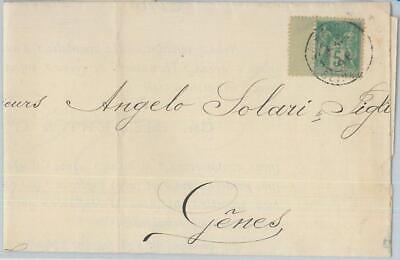 eurs Angelo Solari & Figli
Gênes